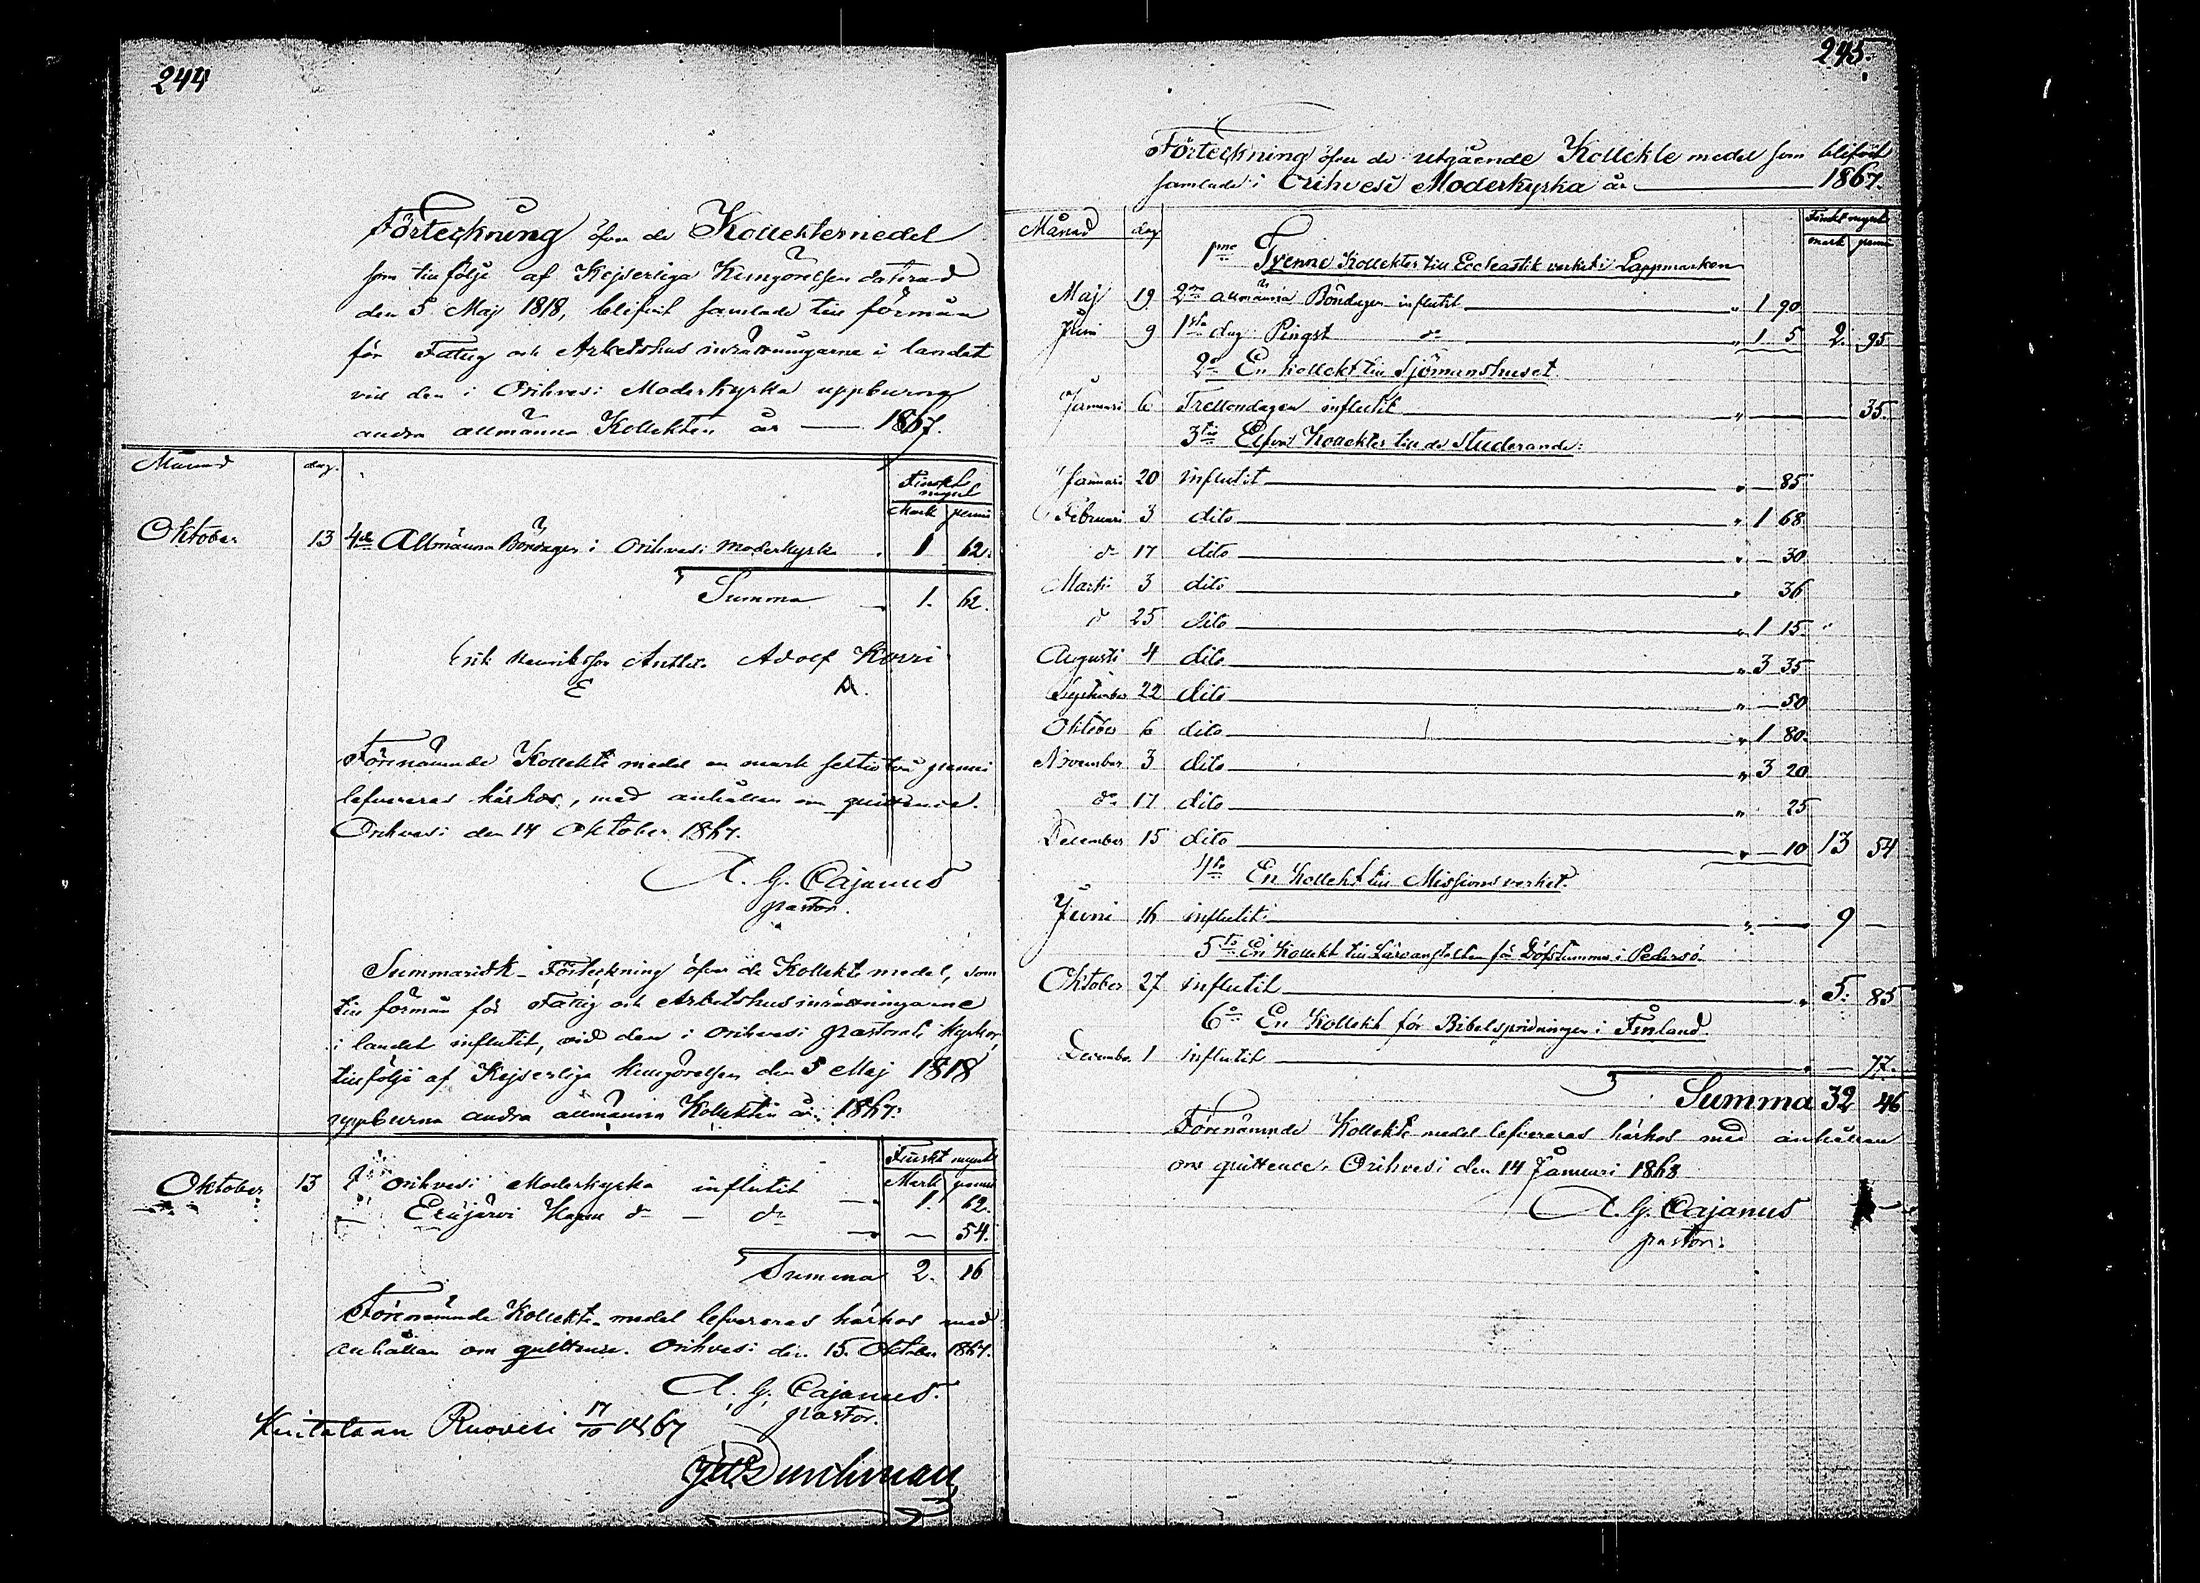 244
Förteckning öfver de Kollektemedel
som till följe af Kejserliga Kungörelsen daterad
den 5 Maj 1818, blifvit samlade till förmån
för Fattig och Arbetshus inrättningarne i landet
vid den i Orihvesi Moderkyrka uppburna
andra allmänna Kollekten år — 1867.
Månad dag. Finskt mynt
Mark penni
Oktober 13 4de Allmänna Böndagen i Orihvesi moderkyrka 1 62.
Summa 1. 62.
Erik Henriksson Anttila Adolf Kovri
E A.
Förenämnde Kollekte medel en mark sextiotvå penni
lefvereras härhos, med anhållan om quittence.
Orihvesi den 14 Oktober 1867.
A. G. Cajanus
pastor.
Summarisk Förteckning öfver de Kollekt medel, som
till förmån för Fattig och Arbetshusinrättningarne
i landet influtit, vid den i Orihvesi pastorats kyrkor,
till följe af Kejserliga kungörelsen den 5 Maj 1818
uppburna andra allmänna Kollekten år 1867.
Finskt mynt
Mark penni
Oktober 13 I Orihvesi Moderkyrka influtit — 1. 62.
" Eräjärvi Kapell do — do — — 54.
Summa 2. 16
Förenämnde Kollekte medel lefvereras härhos med
anhållan om quittence. Orihvesi den 15 Oktober 1867.
A. G. Cajanus.
pastor.
Kvitteraan Ruovesi 17/10 1867
245.
Förteckning öfver de utgående Kollekte medel som blifvit
samlade i Orihvesi Moderkyrka år — 1867.
Månad dag Finskt mynt
mark penni
1mo Tvenne Kollekter till Ecclesiastik verket i Lappmarken
Maj 19 2dra allmänna Böndagen influtit — " 1 90
Juni 9 1sta dag Pingst do — " 1 5 2. 95
2do En kollekt till Sjömanshuset
Januari 6 Trettondagen influtit — " — 35.
3tio Elfva Kollekter till de Studerande:
Januari 20 influtit — " — 85
Februari 3 dito — " 1 68
do 17 dito — " — 30
Marti 3 dito — " 36
do 25 dito — " 1 15
Augusti 4 dito — " 3 35
September 22 dito — " — 50
Oktober 6 dito — " 1 80
November 3 dito — " 3 20
do 17 dito — " 25
December 15 dito — " — 10 13 54
4to En Kollekt till Missions verket.
Juni 16 influtit — " — 9 —
5to En Kollekt till Läroanstalten för Döfstumma i Pedersö.
Oktober 27 influtit — " 5. 85
6to En Kollekt för Bibelspridningen i Finland.
December 1 influtit — " — 77.
Summa 32 46
Förenämnde Kollekte medel lefvereras härhos med anhållan
om quittence. Orihvesi den 14 Januari 1868
A. G. Cajanus
pastor.